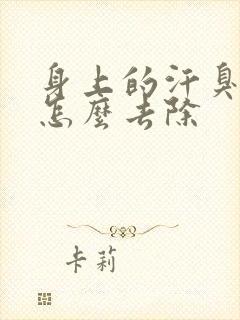 身上的汗臭
怎麼去除
卡莉